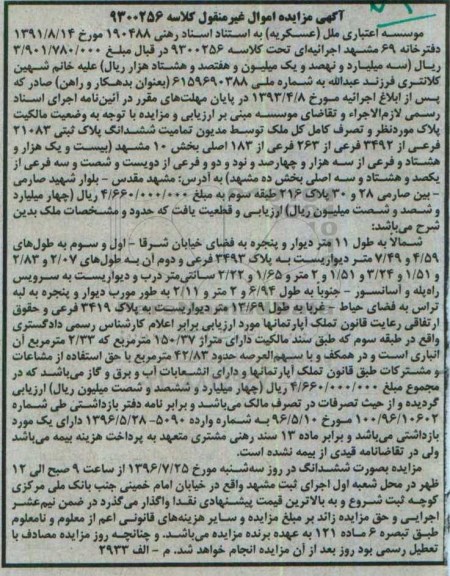 آگهی مزایده اموال غیرمنقول کلاسه ۹۳۰۰۲۵۶
موسسه اعتباری ملل (عسکریه) به استناد اسناد رهنی ۱۹۰۴۸۸ مورخ ۱۳۹۱/۸/۱۴
دفترخانه ۶۹ مشهد اجرائیه‌ای تحت کلاسه ۹۳۰۰۲۵۶ در قبال مبلغ ۳/۹۰۱/۷۸۰/۰۰۰
ریال (سه میلیارد و نهصد و یک میلیون و هفتصد و هشتاد هزار ریال) علیه خانم شهین
کلانتری فرزند عبدالله به شماره ملی ۶۱۵۹۶۹۰۳۸۸ (بعنوان بدهکار و راهن) صادر که
پس از ابلاغ اجرائیه مورخ ۱۳۹۳/۴/۸ در پایان مهلت‌های مقرر در آئین‌نامه اجرای اسناد
رسمی لازم‌الاجراء و تقاضای موسسه مبنی بر ارزیابی و مزایده با توجه به وضعیت مالکیت
پلاک موردنظر و تصرف کامل کل ملک توسط مدیون تمامیت ششدانگ پلاک ثبتی ۲۱۰۸۳
فرعی از ۳۴۹۲ فرعی از ۲۶۳ فرعی از ۱۸۳ اصلی بخش ۱۰ مشهد (بیست و یک هزار و
هشتاد و فرعی از سه هزار و چهارصد و نود و دو و فرعی از دویست و شصت و سه فرعی از
یکصد و هشتاد و سه اصلی بخش ده مشهد) به آدرس: مشهد مقدس - بلوار شهید صارمی
- بین صارمی ۲۸ و ۳۰ پلاک ۲۱۶ طبقه سوم به مبلغ ۴/۶۶۰/۰۰۰/۰۰۰ ریال (چهار میلیارد
و ششصد و شصت میلیون ریال) ارزیابی و قطعیت یافت که حدود و مشخصات ملک بدین
شرح می‌باشد:
شمالا به طول ۱۱ متر دیوار و پنجره به فضای خیابان شرقا - اول و سوم به طول‌های
۴/۵۹ و ۷/۴۹ متر دیواریست به پلاک ۳۴۹۳ فرعی و دوم آن به طول‌های ۲/۰۷ و ۲/۸۳
و ۱/۵۱ و ۳/۲۴ و ۱/۵۱ و ۲ متر و ۱/۶۵ و ۲/۲۲ سانتی‌متر درب و دیواریست به سرویس
راه‌پله و آسانسور - جنوبا به طول ۶/۹۴ و ۲ متر و ۲/۱۱ به طور مورب دیوار و پنجره به لبه
تراس به فضای حیاط - غربا به طول ۱۳/۶۹ متر دیواریست به پلاک ۳۴۱۹ فرعی و حقوق
ارتفاقی رعایت قانون تملک آپارتمانها مورد ارزیابی برابر اعلام کارشناس رسمی دادگستری
واقع در طبقه سوم که طبق سند مالکیت دارای متراژ ۱۵۰/۳۷ مترمربع که ۲/۳۳ مترمربع آن
انباری است و در همکف و با سهم‌العرصه حدود ۴۲/۸۳ مترمربع با حق استفاده از مشاعات
و مشترکات طبق قانون تملک آپارتمانها و دارای انشعابات آب و برق و گاز می‌باشد که در
مجموع مبلغ ۴/۶۶۰/۰۰۰/۰۰۰ ریال (چهار میلیارد و ششصد و شصت میلیون ریال) ارزیابی
گردیده و از حیث تصرفات در تصرف مالک می‌باشد و برابر نامه دفتر بازداشتی طی شماره
۱۰۰/۹۶/۱۰۶۰۲ مورخ ۹۶/۵/۱۰ به شماره وارده ۵۰۹۰-۱۳۹۶/۵/۲۸ دارای یک مورد
بازداشتی می‌باشد و برابر ماده ۱۳ سند رهنی مشتری متعهد به پرداخت هزینه بیمه می‌باشد
ولی در تقاضانامه قیدی از بیمه نشده است.
مزایده بصورت ششدانگ در روز سه‌شنبه مورخ ۱۳۹۶/۷/۲۵ از ساعت ۹ صبح الی ۱۲
ظهر در محل شعبه اول اجرای ثبت مشهد واقع در خیابان امام خمینی جنب بانک ملی مرکزی
کوچه ثبت شروع و به بالاترین قیمت پیشنهادی نقدا واگذار می‌گردد در ضمن نیم‌عشر
اجرایی و حق مزایده زائد بر مبلغ مزایده و سایر هزینه‌های قانونی اعم از معلوم و نامعلوم
طبق تبصره ۶ ماده ۱۲۱ به عهده برنده مزایده می‌باشد. و چنانچه روز مزایده مصادف با
تعطیل رسمی بود روز بعد از آن مزایده انجام خواهد شد. م - الف ۲۹۳۳